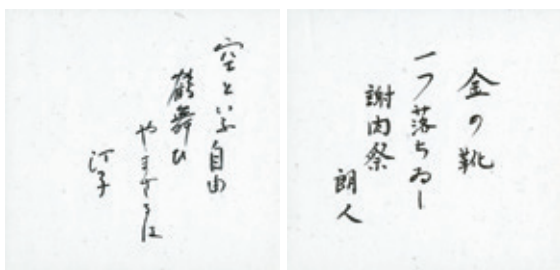 金の靴
一つ落ちゐし
謝肉祭
朗人
空といふ自由
鶴舞ひ
やまざるは
汀子